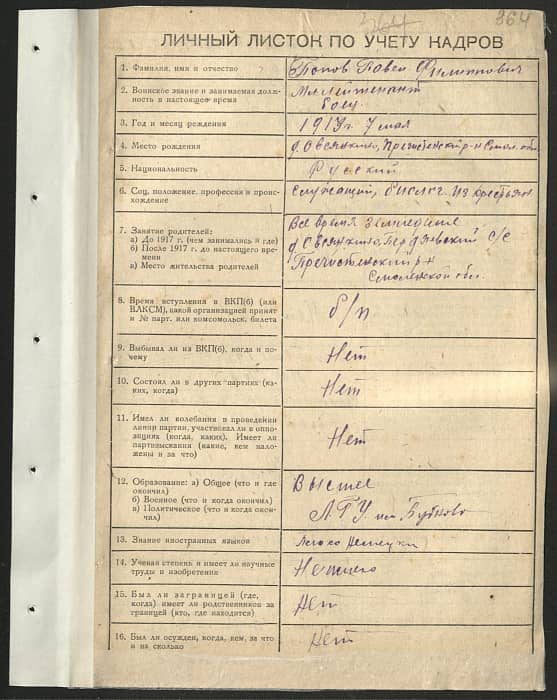 364
ЛИЧНЫЙ ЛИСТОК ПО УЧЕТУ КАДРОВ
1. Фамилия, имя и отчество
Попов Павел Филиппович
2. Воинское звание и занимаемая долж-
ность в настоящее время
Мл лейтенант
боец
3. Год и месяц рождения
1919 г. 7 мая
4. Место рождения
д. Овсянкино, Пречистенский р-н Смол. обл.
5. Национальность
Русский
6. Соц. положение, профессия и проис-
хождение
Служащий, из крестьян
7. Занятие родителей:
а) До 1917 г. (чем занимались и где)
б) После 1917 г. до настоящего вре-
мени
в) Место жительства родителей
Все время земледелие
д Овсянкино, с/с
Пречистенский р-н
Смоленской обл.
8. Время вступления в ВКП(б) (или
ВЛКСМ), какой организацией принят
и № парт. или комсомольск. билета
б/п
9. Выбывал ли из ВКП(б), когда и по-
чему
Нет
10. Состоял ли в других партиях (ка-
ких, когда)
Нет
11. Имел ли колебания в проведении
линии партии, участвовал ли в оппо-
зициях (когда, каких). Имеет ли
партвзыскания (какие, кем нало-
жены и за что)
Нет
12. Образование: а) Общее (что и где
окончил)
б) Военное (что и когда окончил)
в) Политическое (что и когда окон-
чил)
Высшее
ЛГУ им Бубнова
13. Знание иностранных языков
14. Ученая степень и имеет ли научные
труды и изобретения
Не имею
15. Был ли заграницей (где,
когда) имеет ли родственников за
границей (кто, где находится)
Нет
16. Был ли осужден, когда, кем, за что
и на сколько
Нет